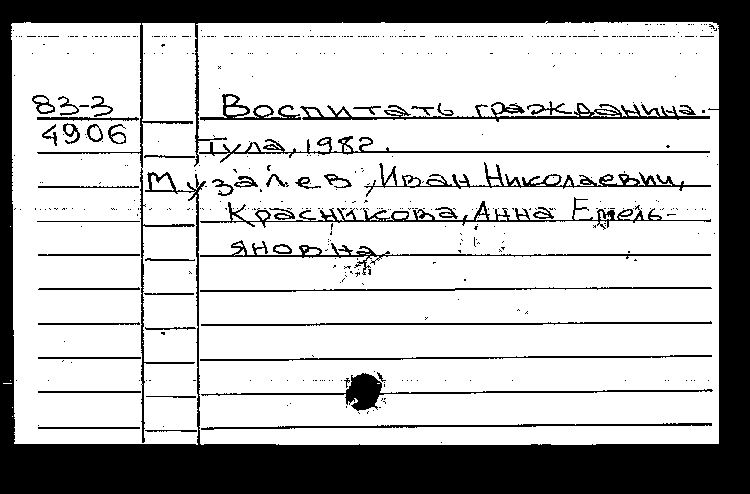 83-3 Воспитать гражданина.-
4906 Тула, 1982.
Музалев, Иван Николаевич,
Красникова, Анна Емель-
яновна.